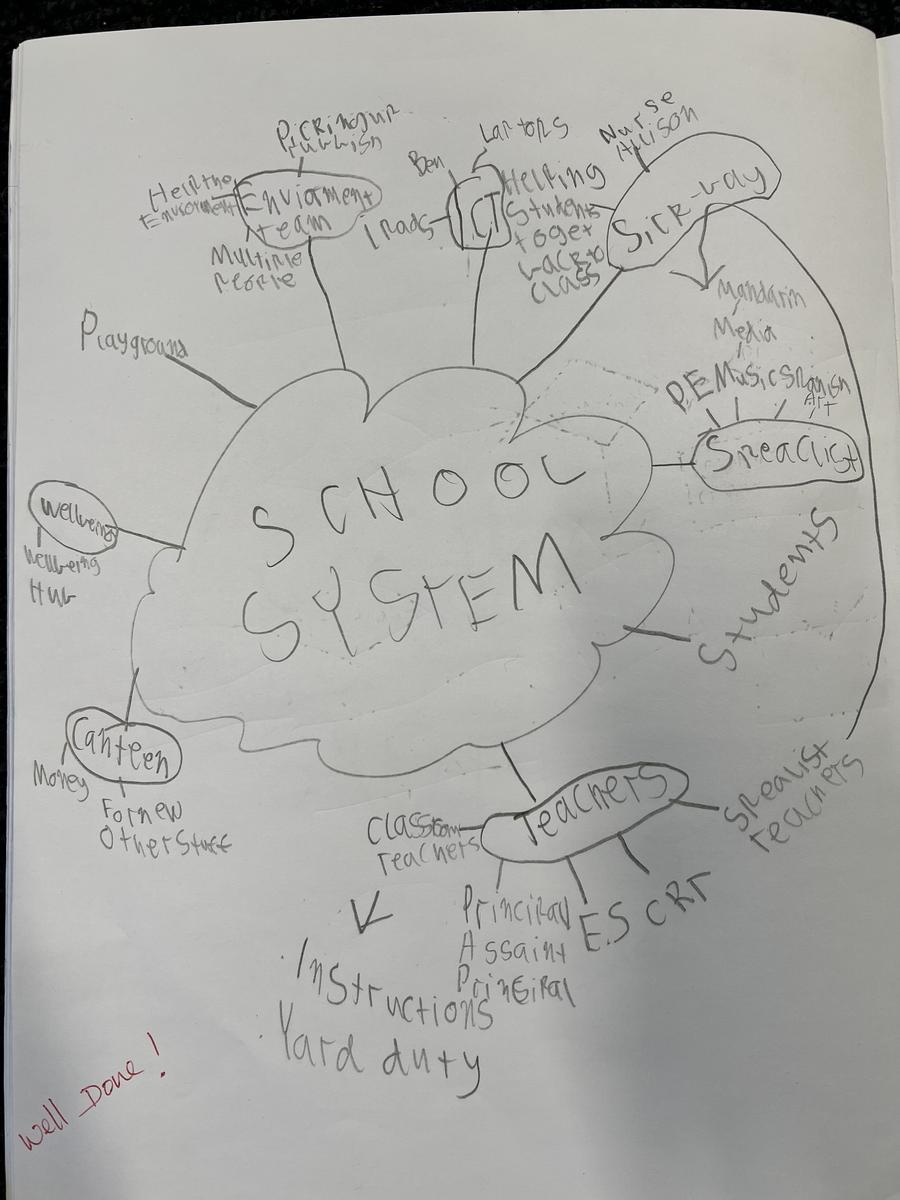 Picking up
rubbish
Help the
Enviorment
Enviorment
team
Multiple
People
Playground
Ben
Laptops
ICT
Ipads
Helping
Students
to get
back to
class
Nurse
Allison
Sick-bay
Mandarin
Media
P.E Music Spanish
Art
Speaclist
SCHOOL
SYSTEM
Wellbeing
Wellbeing
Hub
Students
Canteen
Money
For new
Other Stuff
Teachers
Classroom
Teachers
Spealist
teachers
Principal
Assaint
Principal
E.S
CRT
Instructions
Yard duty
Well Done!